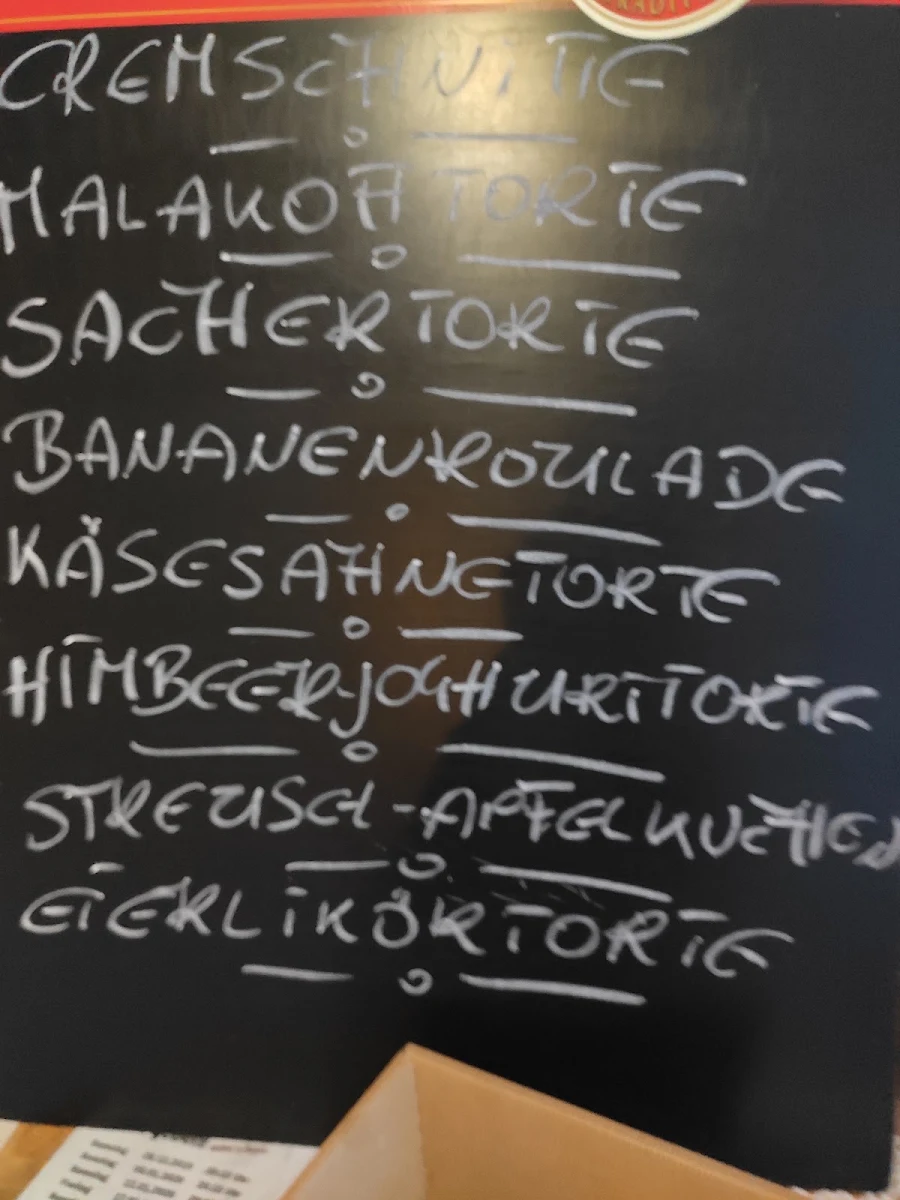 CREMSCHNITTE
MALAKOFFTORTE
SACHERTORTE
BANANENROULADE
KÄSESAHNETORTE
HIMBEER-JOGHURTTORTE
STREUSEL-APFELKUCHEN
EIERLIKÖRTORTE